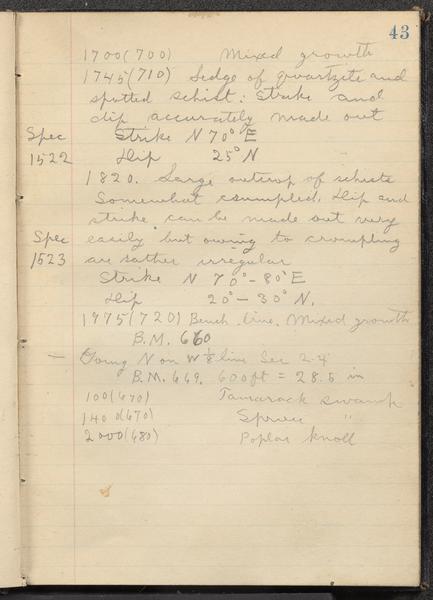 43
1700(700) Mixed growth
1745(710) Ledge of quartzite and
spotted schist: Strike and
dip accurately made out
Spec 1522
Strike N 70° E
Dip 25° N
1820. Large outcrop of schists
Somewhat crumpled. Dip and
strike can be made out very
Spec 1523
easily but owing to crumpling
are rather irregular
Strike N 70° - 80° E
Dip 20° - 30° N.
1975(720) Bench line. Mixed growth
B.M. 660
— Going N on W 1/8 line Sec 24
B.M. 669. 600ft = 28.5 in
100(670) Tamarack swamp
1400(670) Spruce "
2000(680) Poplar knoll